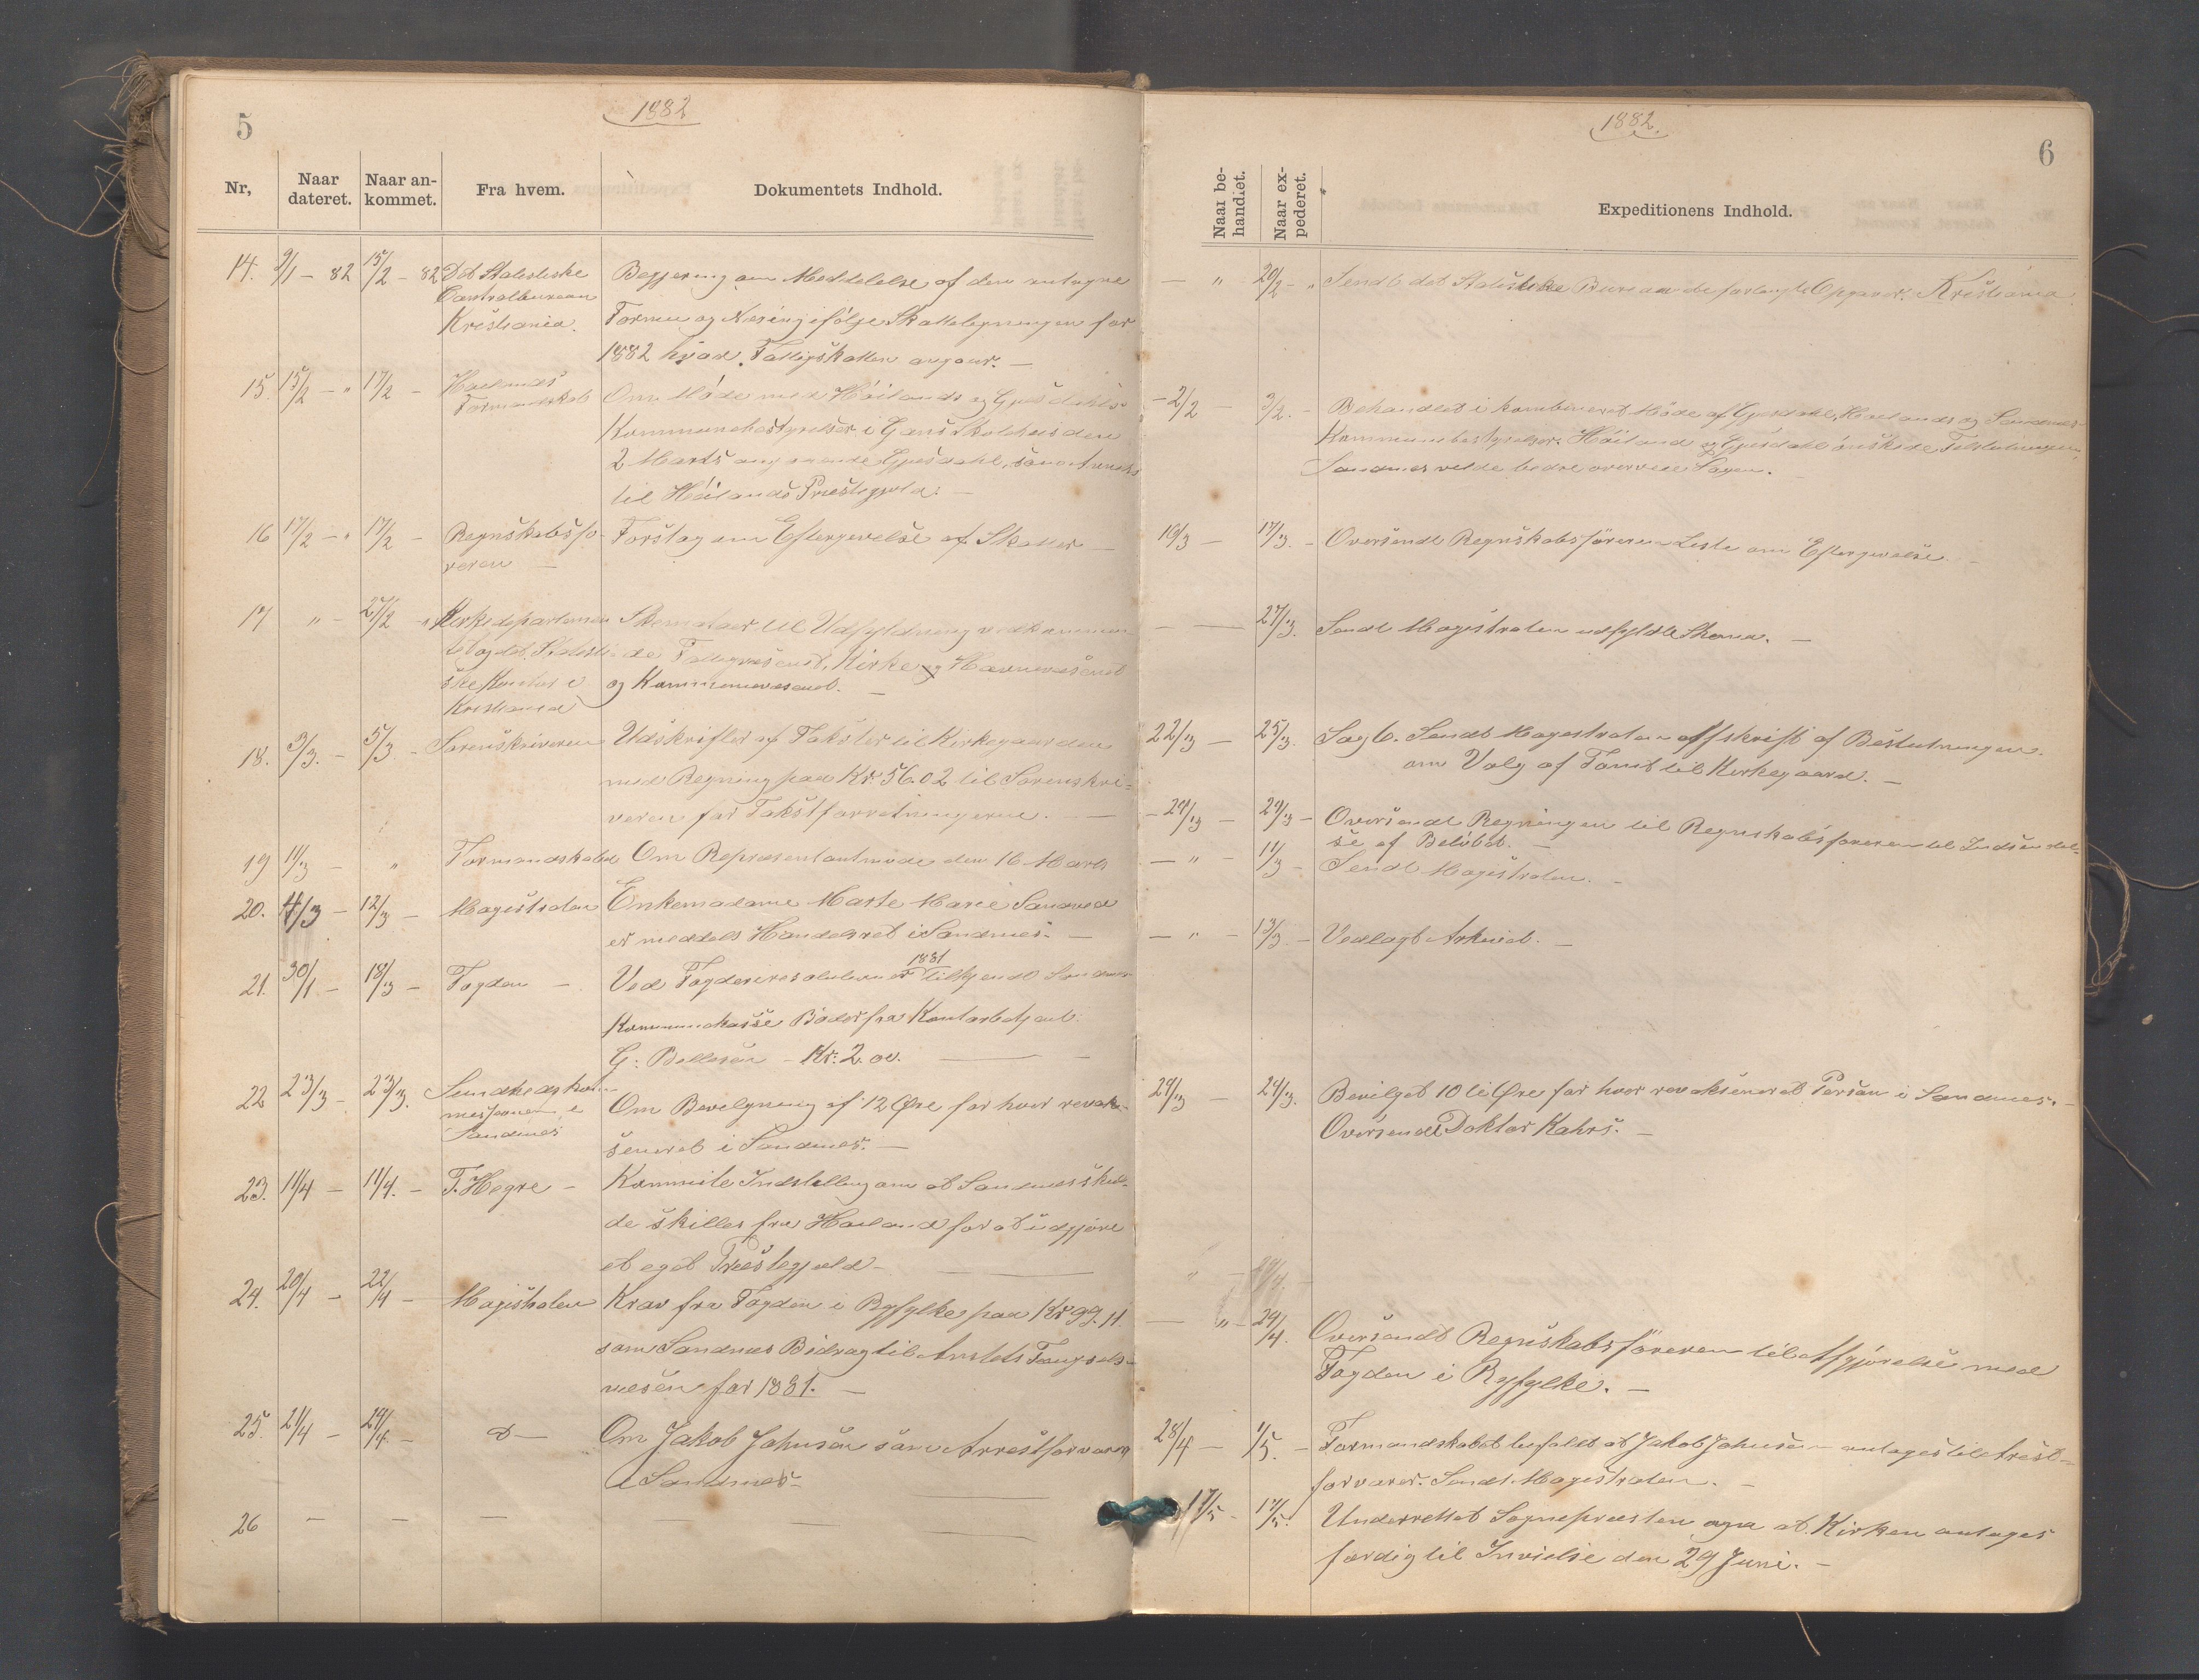 5
1882
Nr,
Naar dateret.
Naar ankommet.
Fra hvem.
Dokumentets Indhold.
14. 9/1 - 82 15/2 - 82 Det Statistiske
Centralbureau
Kristiania.
Begjering om Meddelelse af den antagne
Formue og Næring ifølge Skatteligningen for
1882 hvad Fattigskatten angaar. —
15. 15/2 - " 17/2 - Høilands
Formandskab
Om Møde med Høilands og Gjesdahls
Kommunebestyrelser i Gans Skolehus den
2 Marts angaaende Gjesdahl som Annex
til Høilands Præstegjeld. —
16 17/2 - " 17/2 - Regnskabsfø-
reren —
Forslag om Eftergivelse af Skatter —
17 " - 27/2 - " Kirkedepartemen
tet og det Statisti
ske Kontor i
Kristiania
Skemaer til Udfyldning vedkommen
de Fattigvæsenet, Kirke og Havnevæsenet
og Kommunevæsenet. —
18. 3/3. - 5/3 - Sorenskriveren
Udskrifter af Takster til Kirkegaarden
med Regning paa Kr. 56.02 til Sorenskri-
veren for Takstforretningerne. —
19 11/3 - " Formandskabet Om Repræsentantmøde den 16 Marts
20. 4/3 - 12/3 - Magistraten Enkemadame Marte Marie Sandved
er meddelt Handelsret i Sandnes. —
21. 30/1 - 18/3 - Fogden —
Ved Fogderiresolutioner 1881 tilkjendt Sandnes
Kommunekasse Bøder fra Kontorbetjent
G. Bellesen - Kr. 2.00. —
22 23/3 - 23/3. Sundhedskom-
missionen i
Sandnes
Om Bevilgning af 12 Øre for hver revak-
sineret i Sandnes. —
23. 11/4 - 11/4. - T. Hegre -
Kommite Indstilling om at Sandnes skul-
de skilles fra Høiland for at udgjøre
et eget Præstegjeld —
24. 20/4 - 22/4 - Magistraten
Krav fra Fogden i Ryfylke paa Kr 99.11
som Sandnes Bidrag til Amtets Fængsels-
væsen for 1881. —
25. 21/4 - 24/4 - do —
Om Jakob Johnsen som Arrestforvarer
i Sandnes —
26 — — — —
6
1882.
Naar behandlet.
Naar expederet.
Expeditionens Indhold.
— " - 20/2 - " Sendt det Statistiske Bureau de forlangte Opgaver. Kristiania.
- 2/2 - 3/2. - Behandlet i kombineret Møde af Gjesdahl, Høilands og Sandnes
Kommunebestyrelser. Høiland og Gjesdahl ønskede Tilslutningen,
Sandnes vilde bedre overveie Sagen.
16/3 - 17/3. - Oversendt Regnskabsføreren Liste om Eftergivelse —
— — 27/3. Sendt Magistraten udfyldte Skema. —
22/3 - 25/3. Sag 6. Sendt Magistraten Afskrift af Beslutningen
om Valg af Tomt til Kirkegaard. —
- 29/3 - 29/3 - Oversendt Regningen til Regnskabsføreren til Indsendel-
se af Beløbet. —
— " - 11/3 - Sendt Magistraten. —
— " - 13/3. - Vedlagt Arkivet. —
24/3 - 24/3. Bevilget 10 ti Øre for hver revaksineret Person i Sandnes. —
Oversendt Doktor Kahrs. —
" 24/4.
— " - 24/4. Oversendt Regnskabsføreren til Afgjørelse med
Fogden i Ryfylke. —
28/4 - 1/5. - Formandskabet bifaldt at Jakob Johnsen antages til Arrest-
forvarer. Sendt Magistraten. —
17/5 - 17/5. Underrettet Sognepræsten ogsaa at Kirken antages
færdig til Invielse den 29 Juni. —